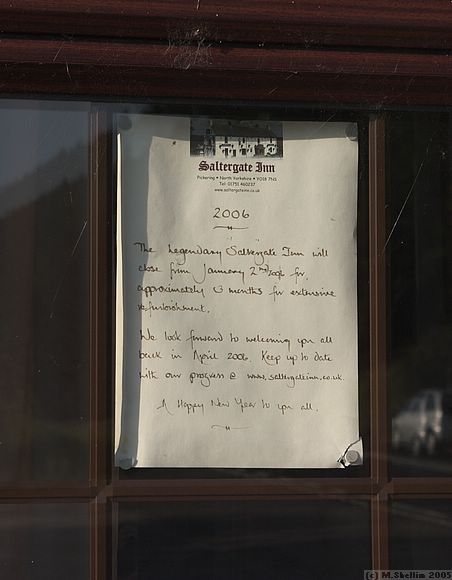 Saltergate Inn
Pickering • North Yorkshire • YO18 7NS
Tel 01751 460237
www.saltergateinn.co.uk
2006
The Legendary "Saltergate Inn will
close from January 2nd 2006 for,
approximately 3 months for extensive
refurbishment.
We look forward to welcoming you all
back in April 2006. Keep up to date
with our progress @ www.saltergateinn.co.uk.
A Happy New Year to you all.
(c) M.Shellim 2005